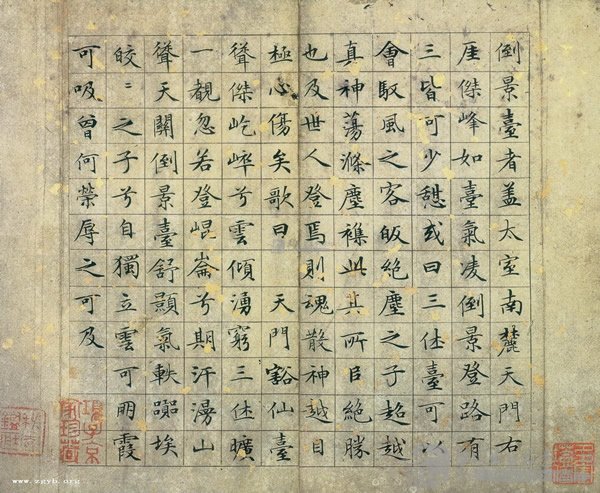 倒景臺者盖太室南麓天門右
厓傑峰如臺氣凌倒景登路有
三皆可少憇或曰三休臺可以
會馭風之客皈絶塵之子超越
真神蕩滌塵襟此其所㠯絶勝
也及世人登焉則魂散神越目
極心傷矣歌曰 天門豁仙臺
聳傑屹崒兮雲傾湧窮三休曠
一覩忽若登崐崙兮期汗漫山
聳天關倒景臺舒顥氣軼嚻埃
皎〻之子兮自獨立雲可朋霞
可吸曾何榮辱之可及
項子京家珍藏
www.zgyb.org